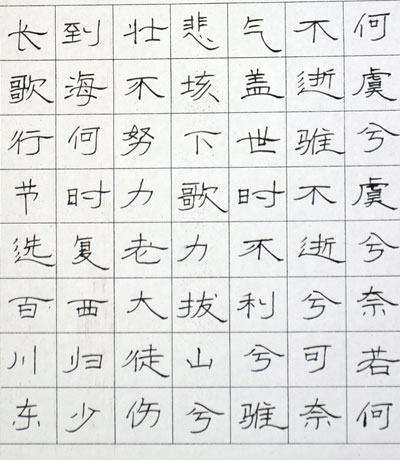 长歌行节选百川东
到海何时复西归少
壮不努力老大徒伤
悲垓下歌力拔山兮
气盖世时不利兮骓
不逝骓不逝兮可奈
何虞兮虞兮奈若何